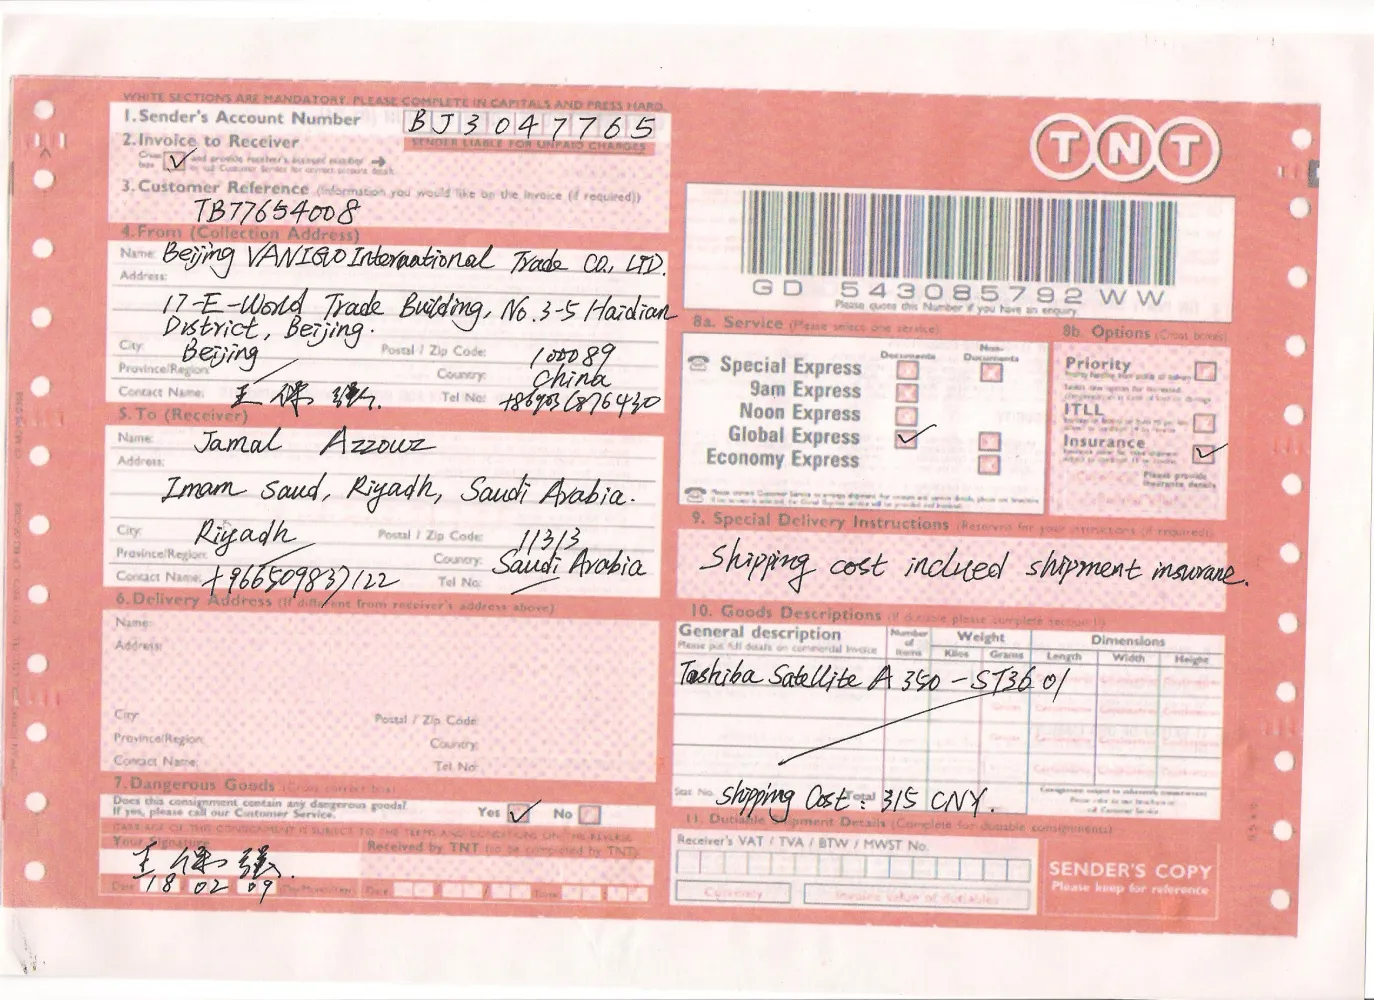 WHITE SECTIONS ARE MANDATORY. PLEASE COMPLETE IN CAPITALS AND PRESS HARD.
1.Sender's Account Number
BJ3047765
SENDER LIABLE FOR UNPAID CHARGES
2.Invoice to Receiver
and provide receiver's account number
3.Customer Reference (Information you would like on the invoice (if required))
TB77654008
4.From (Collection Address)
Name: Beijing VANIGO International Trade CO., LTD.
Address:
17-E-World Trade Building, No.3-5 Haidian
District, Beijing.
City: Beijing Postal / Zip Code: 100089
Province/Region: Country: China
Contact Name: Tel No:
5. To (Receiver)
Name: Jamal Azzouz
Address:
Imam Saud, Riyadh, Saudi Arabia.
City: Riyadh Postal / Zip Code: 11313
Province/Region: Country: Saudi Arabia
Contact Name: +966509837122 Tel No:
6.Delivery Address (If different from receiver's address above)
Name:
Address:
City: Postal / Zip Code:
Province/Region: Country:
Contact Name: Tel No:
7.Dangerous Goods
Does this consignment contain any dangerous goods? Yes No
If yes, please call our Customer Service.
Your Signature
Received by TNT (to be completed by TNT)
Date 18 02 09 Date Time
TNT
GD 543085792 WW
Please quote this Number if you have an enquiry
8a. Service (Please select one service)
Documents Non-Documents
Special Express
9am Express
Noon Express
Global Express
Economy Express
8b. Options (Cross boxes)
Priority
ITLL
Insurance
Please provide
insurance details
9. Special Delivery Instructions (Reserved for your instructions (if required))
Shipping cost inclued shipment insurane.
10. Goods Descriptions
General description Number of Items Weight Dimensions
Please put full details on commercial Invoice Kilos Grams Length Width Height
Toshiba Satellite A 350 - ST3601
Total
Shipping Cost: 315 CNY.
11. Dutiable Shipment Details (Complete for dutiable consignments)
Receiver's VAT / TVA / BTW / MWST No.
Currency Invoice value of dutiables
SENDER'S COPY
Please keep for reference